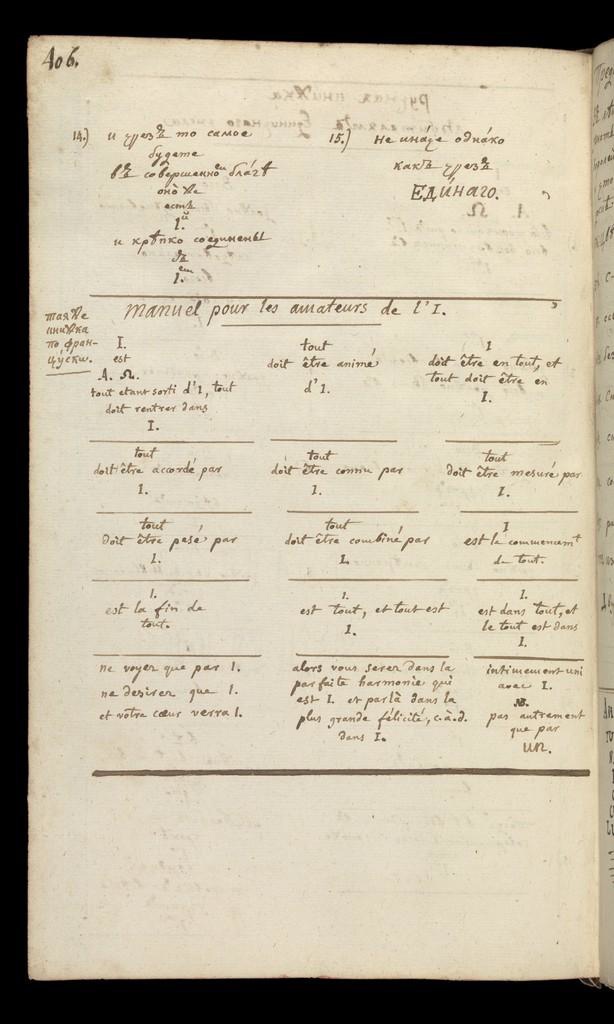 406.
14.) и чрезъ то самое
будете
въ совершенной благѣ
оно же
есть
1.й
и крѣпко соединены
съ
1.емъ
15.) Не иначе однако
какъ чрезъ
ЕДИНАГО.
Manuel pour les amateurs de l'I.
таже
книжка
по фран-
цузски.
I.
est
A. Ω.
tout etant sorti d'I, tout
doit rentrer dans
I.
tout
doit être animé
d'I.
I
doit être en tout, et
tout doit être en
I.
tout
doit être accordé par
I.
tout
doit être connu par
I.
tout
doit être mesuré par
I.
tout
doit être pesé par
I.
tout
doit être combiné par
I.
I
est le commencemt
de tout.
I.
est la fin de
tout.
I.
est tout, et tout est
I.
I.
est dans tout, et
le tout est dans
I.
ne voyez que par I.
ne desirez que I.
et vôtre cœur verra I.
alors vous serez dans la
parfaite harmonie qui
est I. et par là dans la
plus grande félicité, c.à.d.
dans I.
intimement uni
avec I.
NB.
pas autrement
que par
UN.